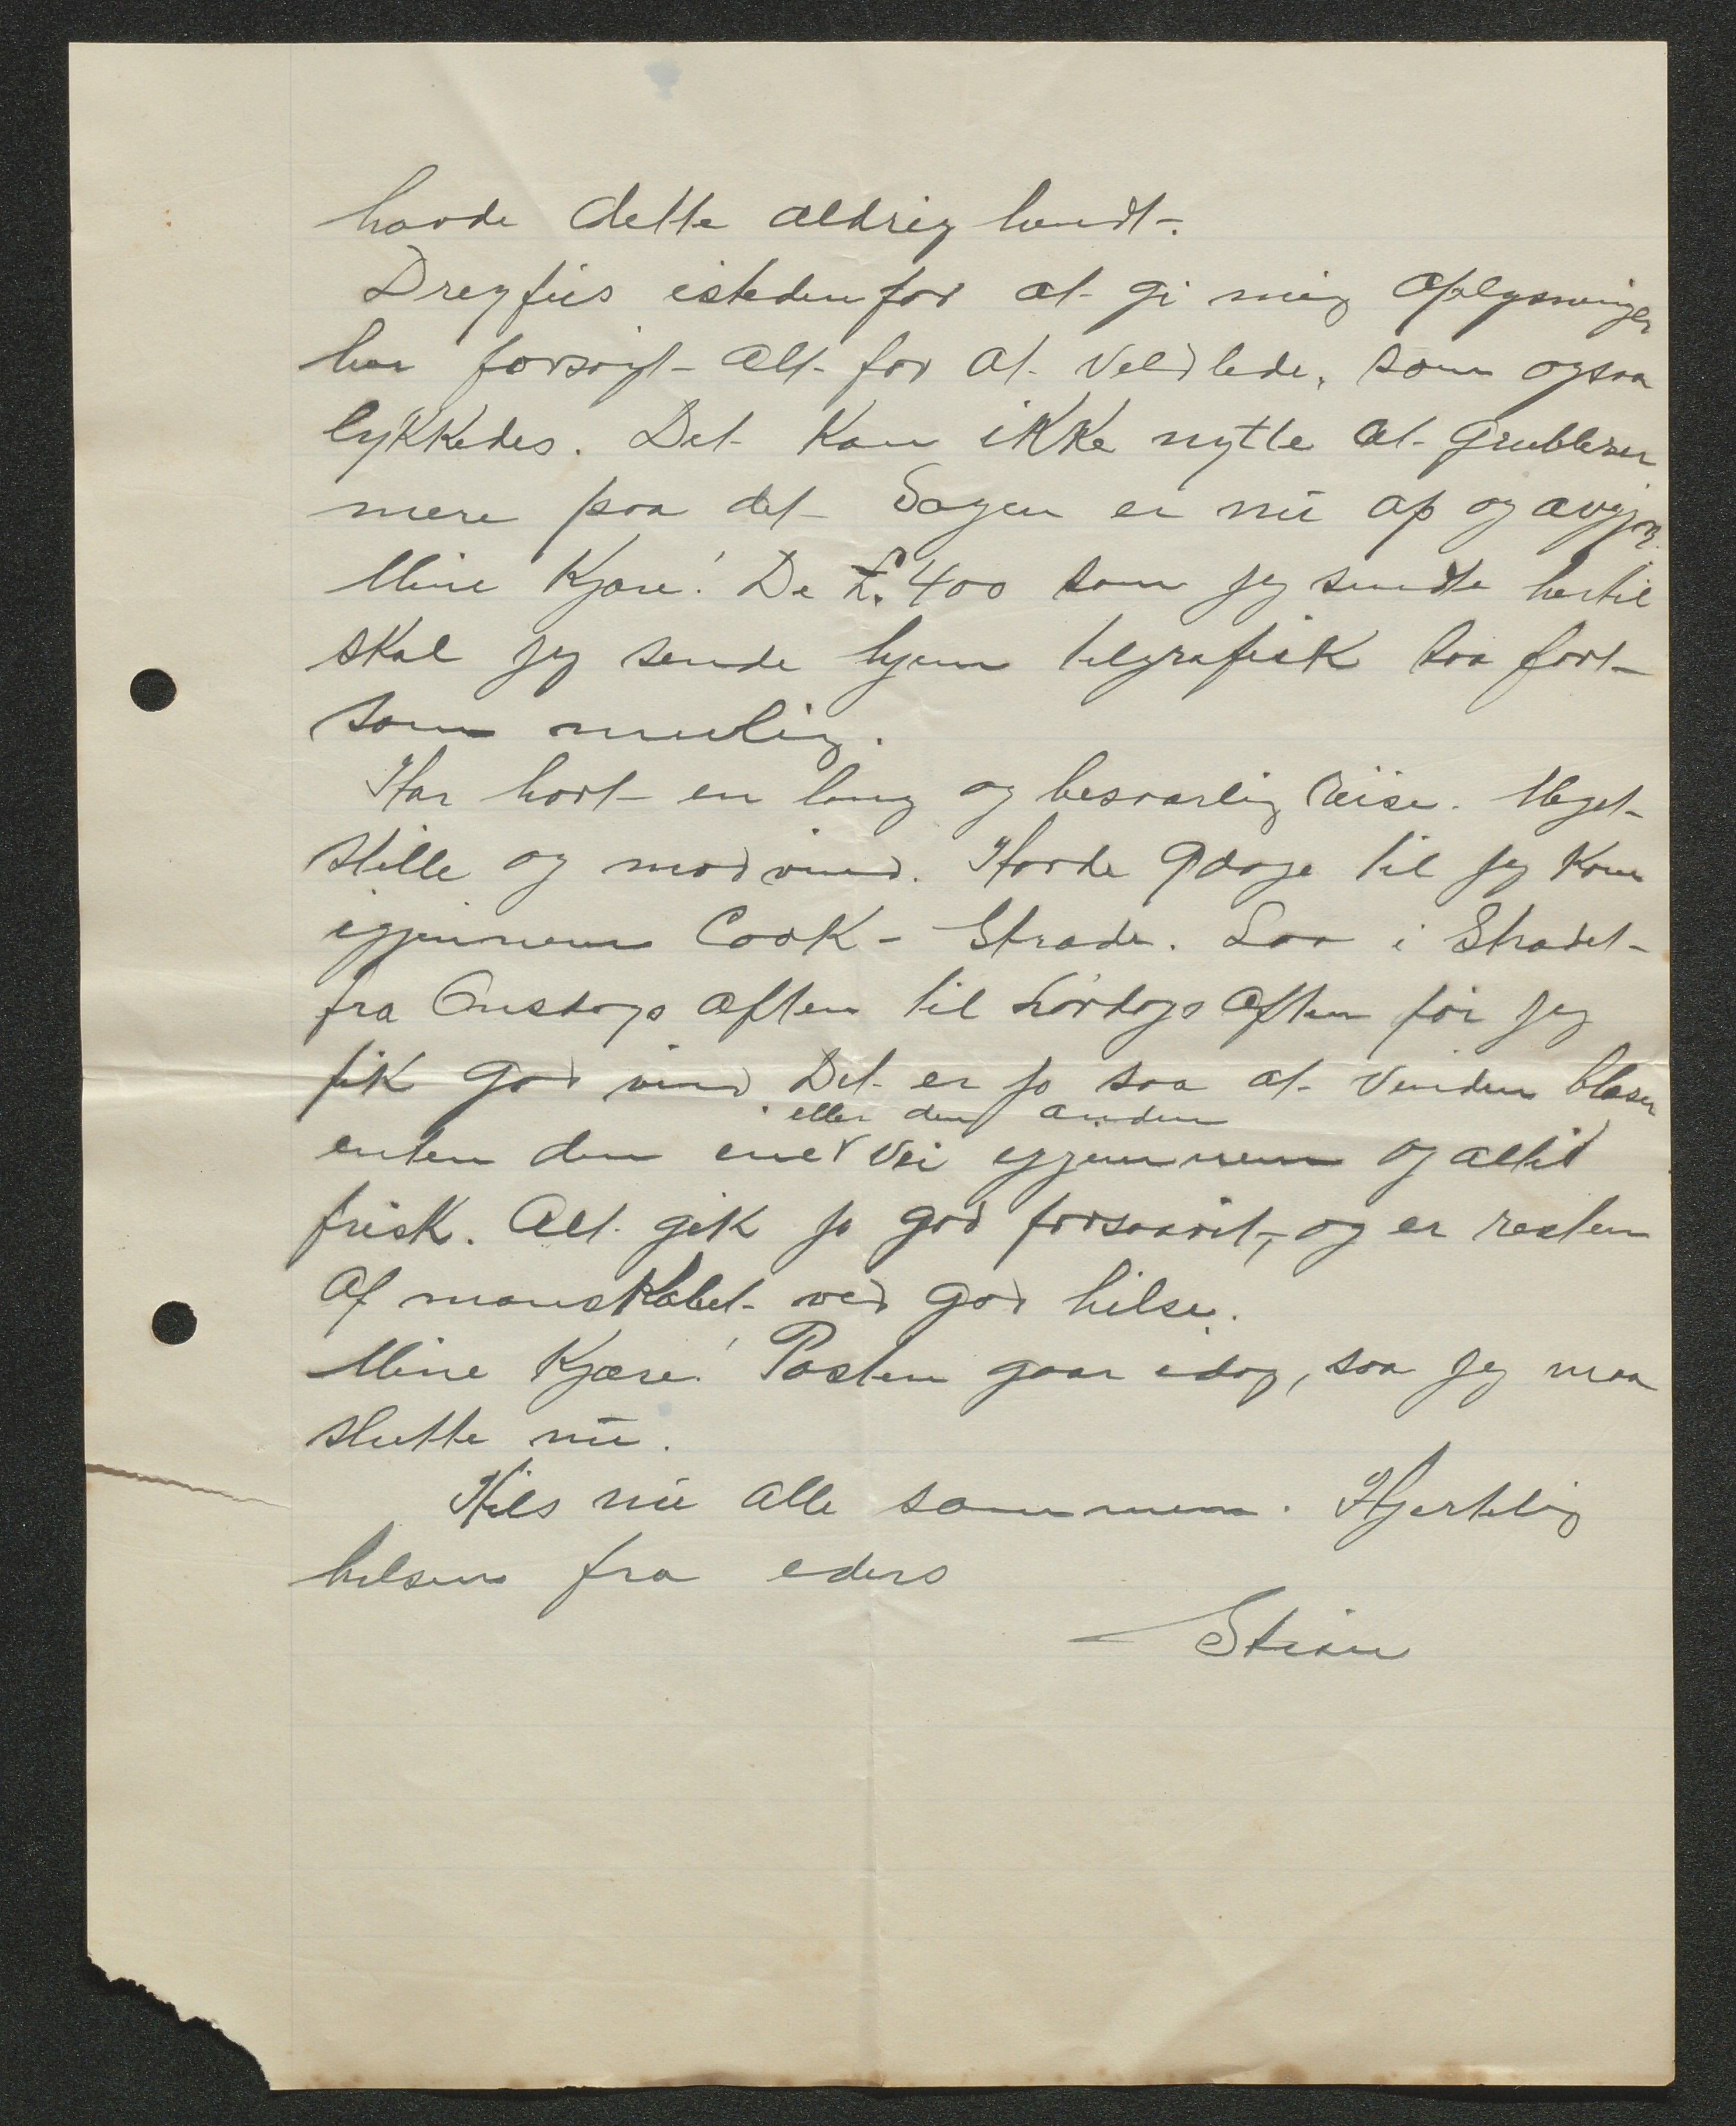 havde dette aldrig hendt.
Dreyfus istedenfor at gi mig oplysninger
har forsøgt alt for at vildlede, som ogsaa
lykkedes. Det kan ikke nytte at grubler
mere paa det Sagen er nu op og avgjor.
Mine Kjære! De £ 400 som jeg sendte hertil
skal jeg sende hjem telgrafisk saa fort
som mulig.
Har havt en lang og besværlig reise. Meget
stille og modvind. Havde 9 dage til jeg kom
igjennem Cook-Strade. Laa i Stradet
fra Onsdags aften til Lørdags aften før jeg
fik god vind. Det er jo saa at vinden blæser
enten den ene eller den anden vei igjennem og altid
frisk. Alt gik jo god forsaavit, og er resten
af manskabet ved god hilse.
Mine Kjære! Posten gaar idag, saa jeg maa
slutte nu.
Hils nu alle sammen. Hjertelig
hilsen fra eders
Stian